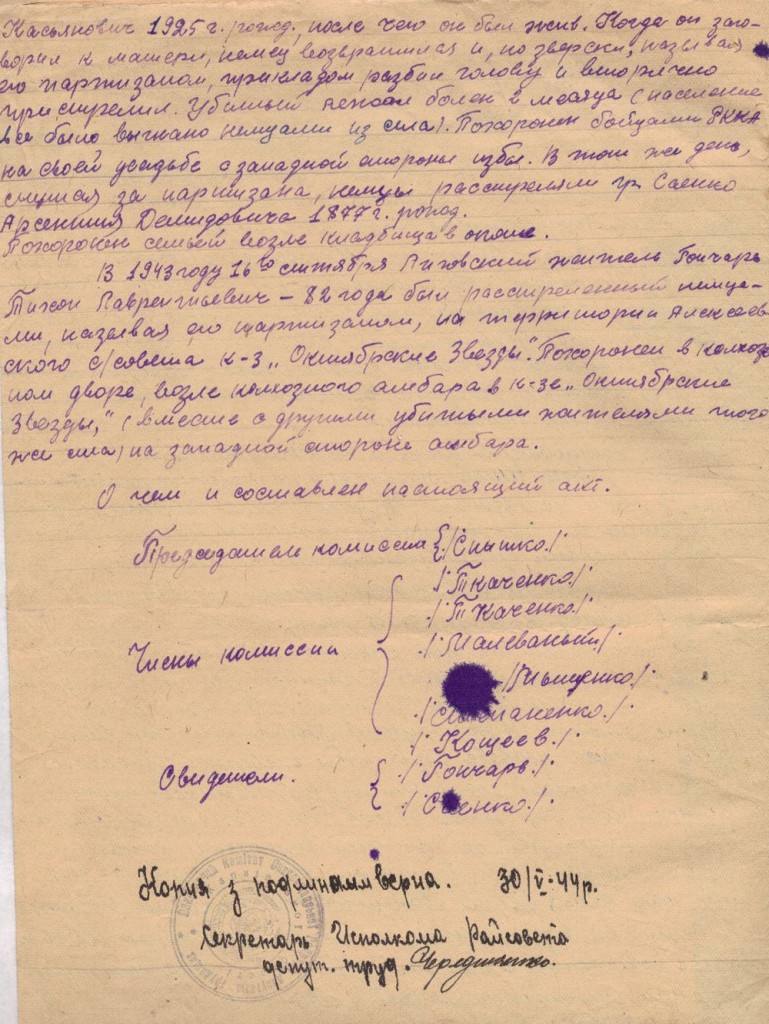 Касьянович 1925 г. рожд., после чего он был жив. Когда он заго-
ворил к матери, немец возвратился и, по зверски, называя
его партизаном, прикладом разбил голову и вторично
пристрелил. Убитый лежал более 2 месяца (население
все было выгнано немцами из села). Похоронен бойцами РККА
на своей усадьбе с западной стороны избы. В тот же день,
считая за партизана, немцы расстреляли гр. Саенко
Арсентия Демидовича 1877 г. рожд.
Похоронен семьей возле кладбища в окопе.
В 1943 году 16го сентября Лиховский житель Гончарь
Тихон Лаврентьевич – 82 года был расстреленный немца-
ми, называя его партизаном, на территории Алексеев-
ского с/совета к-з „Октябрские Звезды". Похоронен в колхоз
ном дворе, возле колхозного амбара в к-зе „Октябрские
Звезды," (вместе с другими убитыми жителями того
же села) на западной стороне амбара.
О чем и составлен настоящий акт.
Председатель комиссии /Снытко./
/Ткаченко./
/Ткаченко./
/Малеваный/
Члены комиссии
/Мищенко./
/Кощеев./
Свидетели. /Гончарь./
/Саенко./
Копия з подлинным верна. 30/V-44 р.
Секретарь Исполкома Райсовета
депут. труд. Чередниченко.